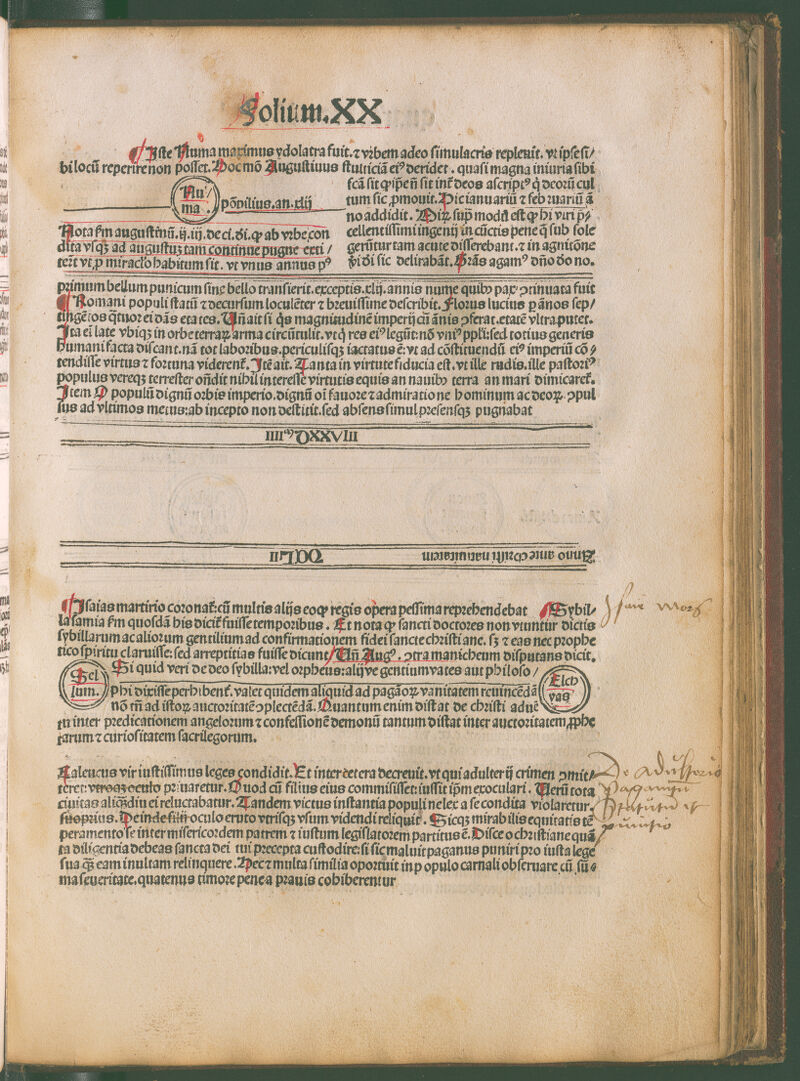 Folium.XX
Iste Numa maximus ydolatra fuit. ⁊ vrbem adeo simulacris repleuit. vt ipse si/
bi locū reperire non posset. Hoc mō Augustinus stulticiā ei⁹ deridet. quasi magna iniuria sibi
Nu/
ma.
pōpilius. an. xlij
scā sit ꝙ ipẽ nō sit int̄ deos ascript⁹ q̄ deorū cul
tum sic ꝓmouit. Hic ianuariū ⁊ februariū ā
no addidit. Mirū sup̄ modū est ꝙ hi viri p̄/
Nota s̄m augustinū. ij. iij. de ci. di. ꝙ ab vrbe con
cellentissimi ingenij in cūctis pene q̄ sub sole
dita vsqꝫ ad augustuꝫ tam continue pugne exti/
gerūtur tam acute disserebant. ⁊ in agnitōne
ter̄t vt ꝓ miraclo habitum sit. vt vnus annus p⁹
di sic delirabāt. Grās agam⁹ dño do no.
primum bellum punicum sine bello transierit. exceptis. xlij. annis nume quibꝰ pax ↄtinuata fuit
Romani populi statū ⁊ decursum loculēter ⁊ breuissime describit. Florus lucius p̱ ānos sep/
tingētos q̄tuor ei dās etates. Uñ ait si q̄s magnitudinē imperij cū ānis ↄferat. etatē vltra putet.
Ita ei late vbiqꝫ in orbe terraꝝ arma circūtulit. vt q̄ res ei⁹ legūt: nō vni⁹ ppl̄i: sed totius generis
humani facta discant. nā tot laboribus. periculisqꝫ iactatus ē: vt ad cōstituendū ei⁹ imperiū cō/
tendisse virtus ⁊ fortuna viderent᷑. Itē ait. Tanta in virtute fiducia est. vt ille rudis. ille pastori⁹
populus vereqꝫ terrester oñdit nihil interesse virtutis equis an nauibꝰ terra an mari dimicaret᷑.
Item O populū dignū orbis imperio. dignū oī fauore ⁊ admiratione hominum ac deoꝝ. ↄpul
sus ad vltimos metus: ab incepto non destitit. sed absens simul presensqꝫ pugnabat
Anno ante cpisti natiuitatem
Isaias martirio coronat᷑: cū multis alijs eoqꝫ regis opera pessima reprehendebat Sybil/
la samia s̄m quosdā his dicit᷑ fuisse temporibus. Et nota ꝙ sancti doctores non vtuntur dictis
sybillarum ac aliorum gentilium ad confirmationem fidei sancte christiane. sꝫ ⁊ eas nec prophe
tico spiritu claruisse: sed arreptitias fuisse dicunt/ Uñ Aug⁹. ↄtra manicheum disputans dicit.
Sel
lum.
Si quid veri de deo sybilla: vel orpheus: alijve gentium vates aut philoso/
phi dixisse perhibent᷑. valet quidem aliquid ad pagāoꝝ vanitatem reuincēdā
nō tñ ad istoꝝ auctoritatē ↄplectēdā. Quantum enim distat de christi aduē
Elch
yas
tu inter predicationem angelorum ⁊ confessionē demonū tantum distat inter auctoritatem ꝓphe
tarum ⁊ curiositatem sacrilegorum.
Zaleucus vir iustissimus leges condidit. Et inter cetera decreuit. vt qui adulterij crimen ↄmit/
teret: vtroqꝫ oculo priuaretur. Quod cū filius eius commisisset: iussit ip̄m exoculari. Uerū tota
ciuitas aliq̄diu ei reluctabatur. Tandem victus instantia populi ne lex a se condita violaretur.
suo prius. Deinde filij oculo eruto vtrisqꝫ vsum videndi reliquit. Sicqꝫ mirabilis equitatis tē
peramento se inter misericordem patrem ⁊ iustum legislatorem partitus ē. Disce o christiane quā
ta diligentia debeas sancta dei tui precepta custodire: si sic maluit paganus puniri pro iusta lege
sua q̄ꝫ eam inultam relinquere. Hec ⁊ multa similia oportuit in populo carnali obseruare cū sū/
ma seueritate. quatenus timore pene a prauis cohiberentur
De Adulterio